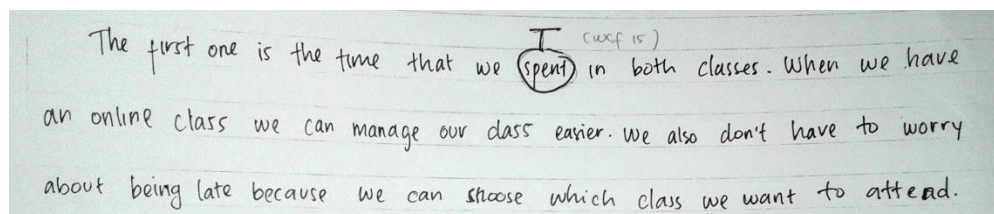 T (wcf 15)
The first one is the time that we spent in both classes. When we have
an online class we can manage our class easier. We also don't have to worry
about being late because we can shoose which class we want to attend.